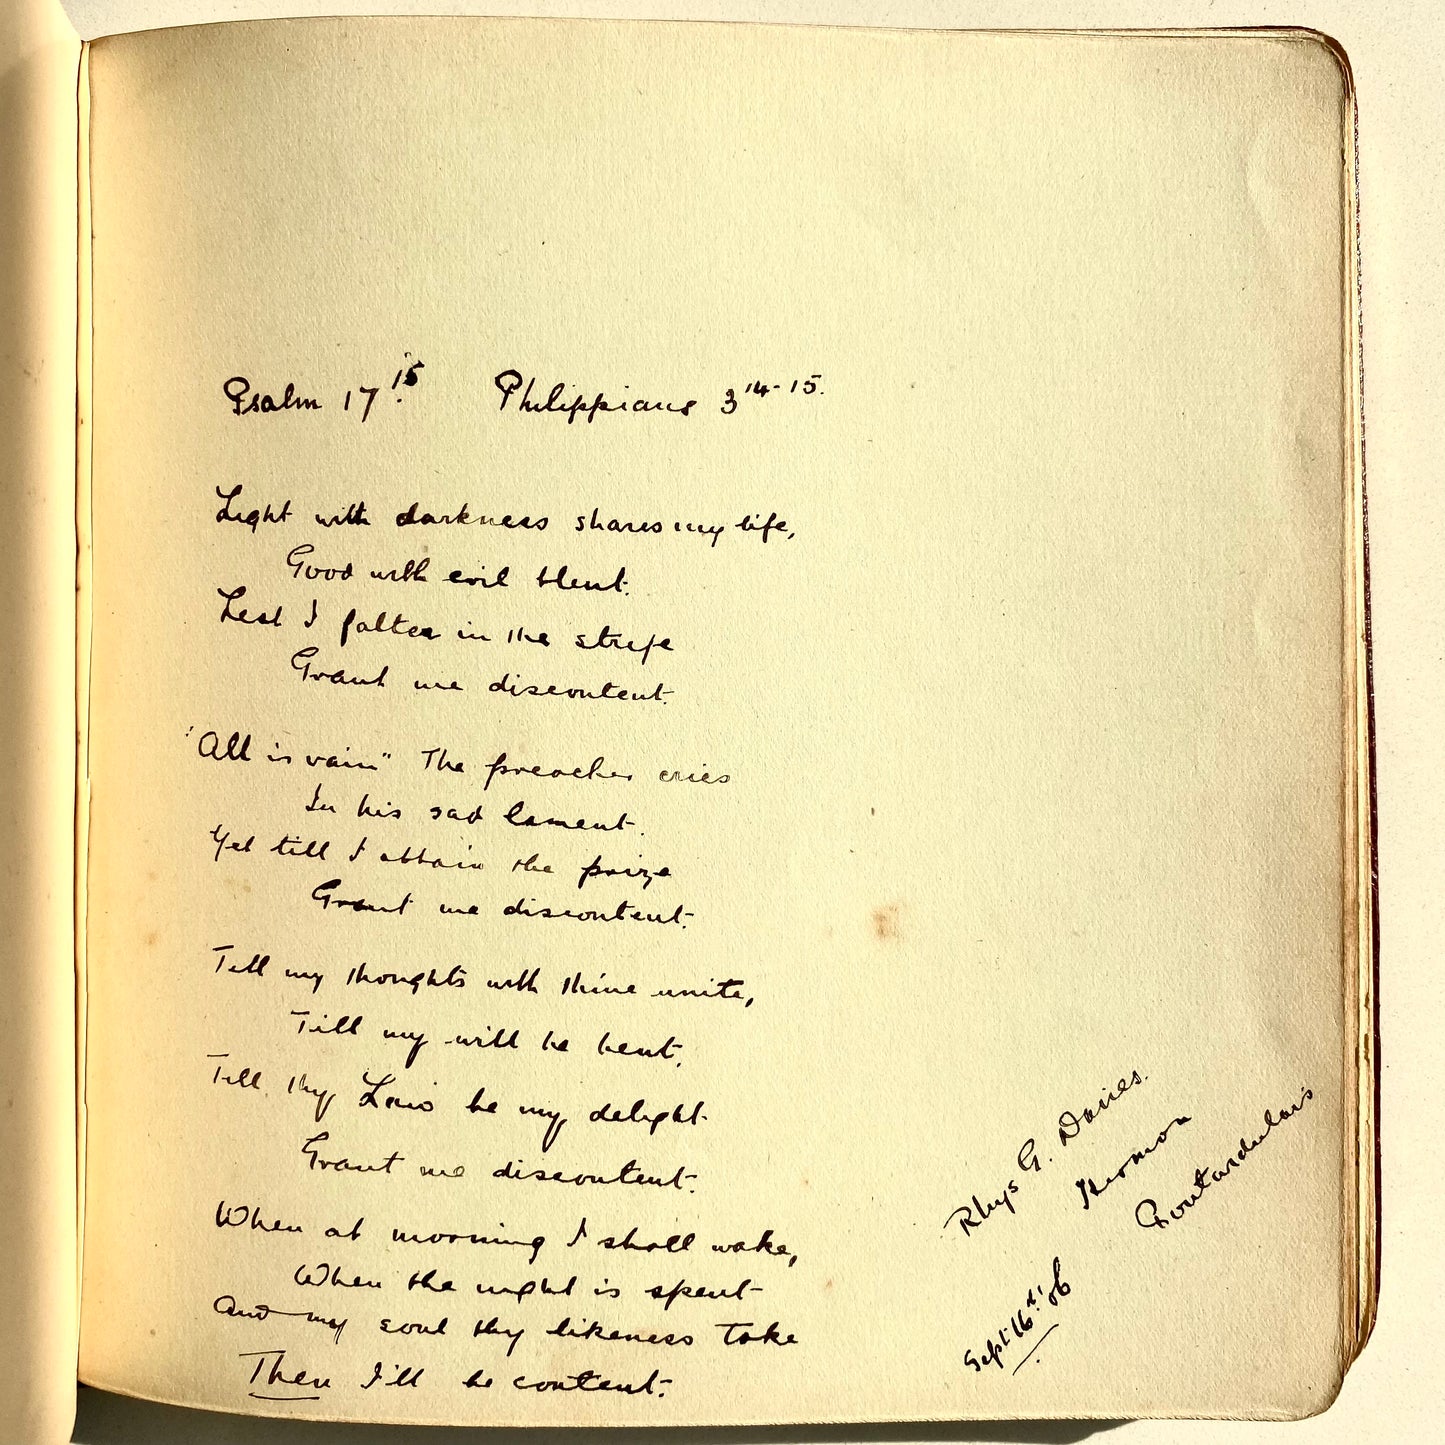 Psalm 17 15. Philippians 3 14-15.
Light with darkness shares my life,
Good with evil blent.
Lest I falter in the strife
Grant me discontent.
"All is vain" The preacher cries
In his sad lament.
Yet till I attain the prize
Grant me discontent.
Till my thoughts with thine unite,
Till my will be bent,
Till thy Law be my delight
Grant me discontent.
When at morning I shall wake,
When the night is spent
And my soul thy likeness take
Then I'll be content.
Rhys G. Davies.
Hermon
Pontardulais
Sept 16th '06